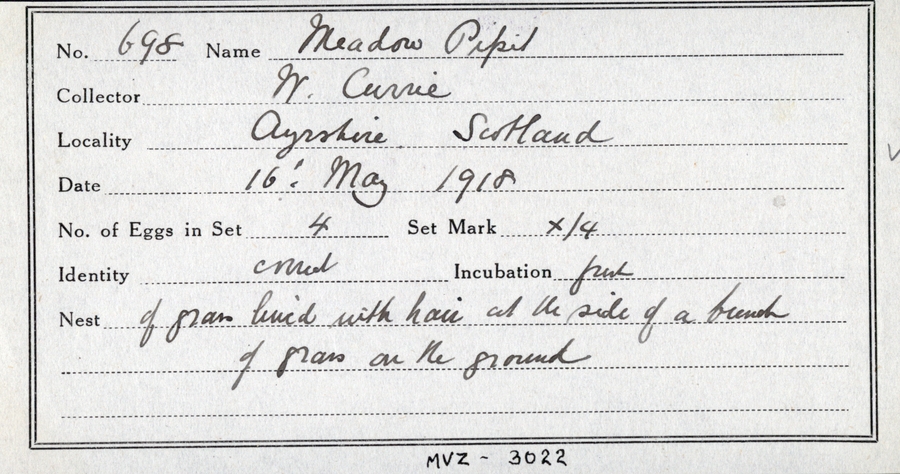 No. 698 Name Meadow Pipit
Collector W. Currie
Locality Ayrshire Scotland
Date 16: May 1918
No. of Eggs in Set 4 Set Mark x/4
Identity correct Incubation fresh
Nest of grass lined with hair at the side of a bunch
of grass on the ground
MVZ - 3022